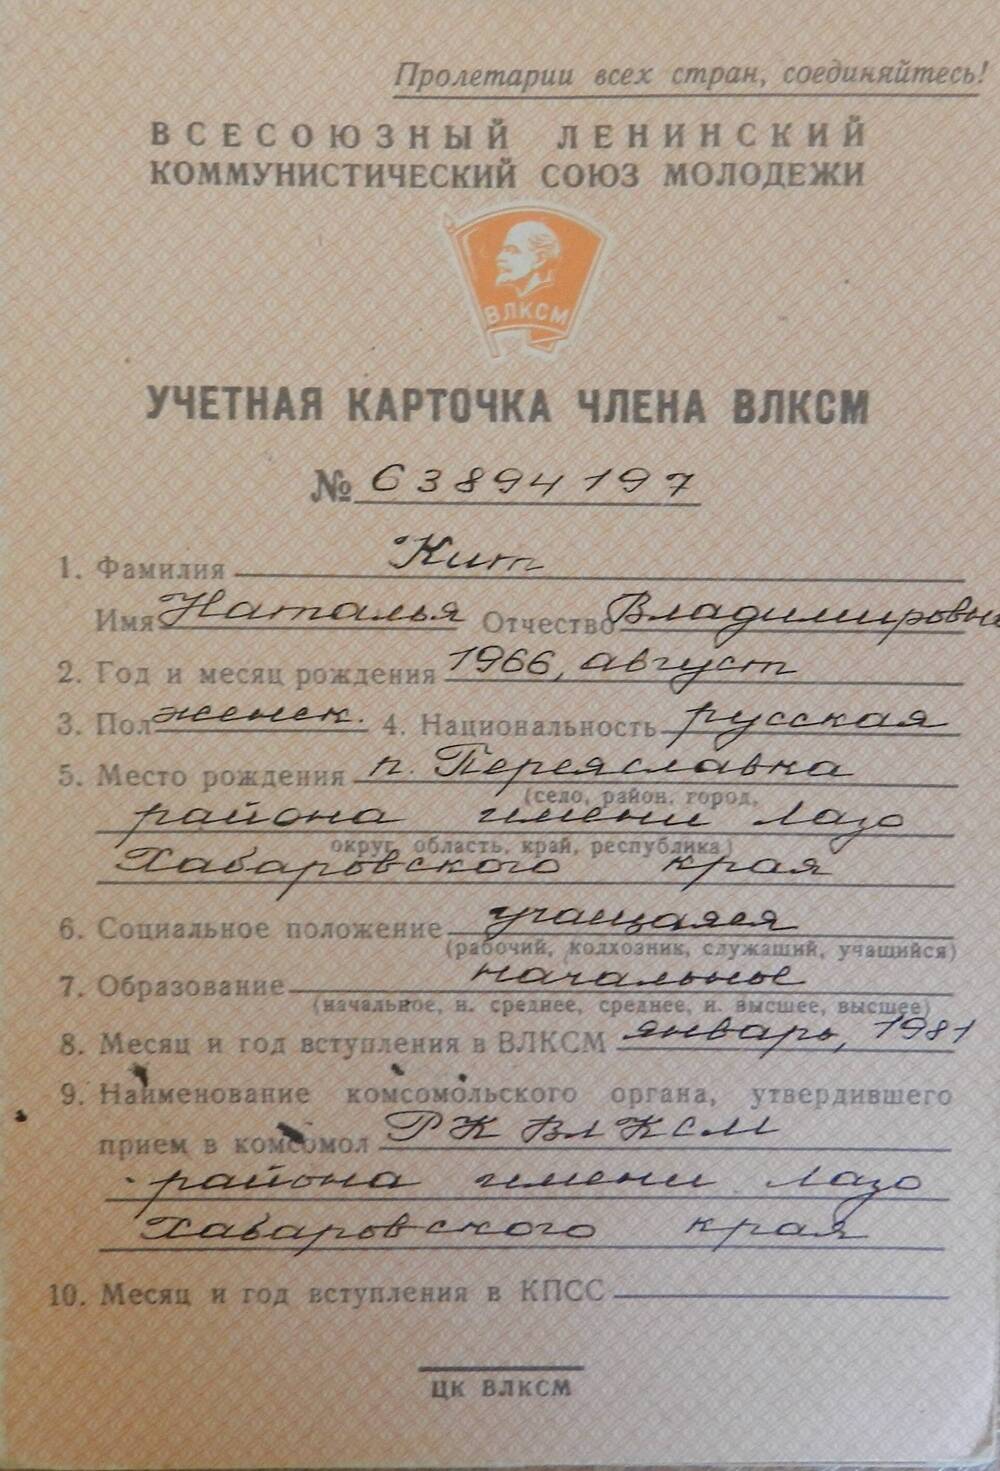 Пролетарии всех стран, соединяйтесь!
ВСЕСОЮЗНЫЙ ЛЕНИНСКИЙ
КОММУНИСТИЧЕСКИЙ СОЮЗ МОЛОДЕЖИ
ВЛКСМ
УЧЕТНАЯ КАРТОЧКА ЧЛЕНА ВЛКСМ
№ 63894197
1. Фамилия Кит
Имя Наталья Отчество Владимировна
2. Год и месяц рождения 1966, август
3. Пол женск. 4. Национальность русская
5. Место рождения п. Переяславка
(село, район, город,
района имени Лазо
округ, область, край, республика)
Хабаровского края
6. Социальное положение учащаяся
(рабочий, колхозник, служащий, учащийся)
7. Образование начальное
(начальное, н. среднее, среднее, н. высшее, высшее)
8. Месяц и год вступления в ВЛКСМ январь, 1981
9. Наименование комсомольского органа, утвердившего
прием в комсомол РК ВЛКСМ
района имени Лазо
Хабаровского края
10. Месяц и год вступления в КПСС
ЦК ВЛКСМ